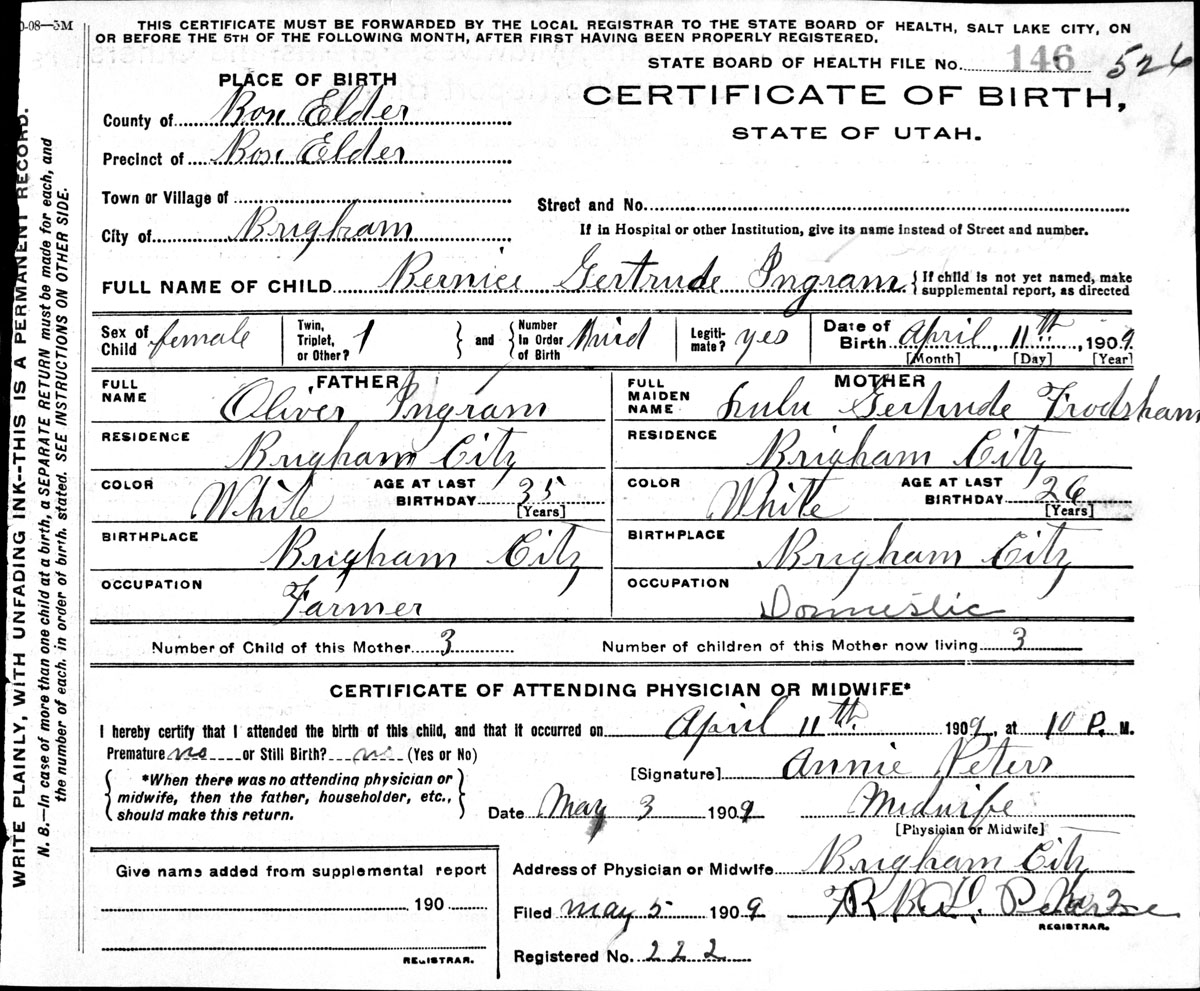 0-08—5M
THIS CERTIFICATE MUST BE FORWARDED BY THE LOCAL REGISTRAR TO THE STATE BOARD OF HEALTH, SALT LAKE CITY, ON
OR BEFORE THE 5TH OF THE FOLLOWING MONTH, AFTER FIRST HAVING BEEN PROPERLY REGISTERED.
STATE BOARD OF HEALTH FILE No. 146 526
PLACE OF BIRTH
CERTIFICATE OF BIRTH,
STATE OF UTAH.
County of Box Elder
Precinct of Box Elder
Town or Village of
Street and No.
City of Brigham
If in Hospital or other Institution, give its name instead of Street and number.
FULL NAME OF CHILD Bernice Gertrude Ingram {If child is not yet named, make
supplemental report, as directed
Sex of Child female
Twin, Triplet, or Other? 1 } and { Number In Order of Birth third
Legiti- mate? yes
Date of Birth April, 11th, 1909
[Month] [Day] [Year]
FATHER
FULL NAME Oliver Ingram
RESIDENCE Brigham City
COLOR White AGE AT LAST BIRTHDAY 35 [Years]
BIRTHPLACE Brigham City
OCCUPATION Farmer
MOTHER
FULL MAIDEN NAME Lulu Gertrude Frodsham
RESIDENCE Brigham City
COLOR White AGE AT LAST BIRTHDAY 26 [Years]
BIRTHPLACE Brigham City
OCCUPATION Domestic
Number of Child of this Mother 3 Number of children of this Mother now living 3
CERTIFICATE OF ATTENDING PHYSICIAN OR MIDWIFE*
I hereby certify that I attended the birth of this child, and that it occurred on April 11th 1909, at 10 P. M.
Premature no or Still Birth? no (Yes or No)
[Signature] Annie Peters
{ *When there was no attending physician or
midwife, then the father, householder, etc.,
should make this return. }
Date May 3 1909 Midwife
[Physician or Midwife]
Address of Physician or Midwife Brigham City
Filed May 5 1909
REGISTRAR.
Registered No. 222
Give name added from supplemental report
190
REGISTRAR.
WRITE PLAINLY, WITH UNFADING INK--THIS IS A PERMANENT RECORD.
N. B.—In case of more than one child at a birth, a SEPARATE RETURN must be made for each, and
the number of each, in order of birth, stated. SEE INSTRUCTIONS ON OTHER SIDE.